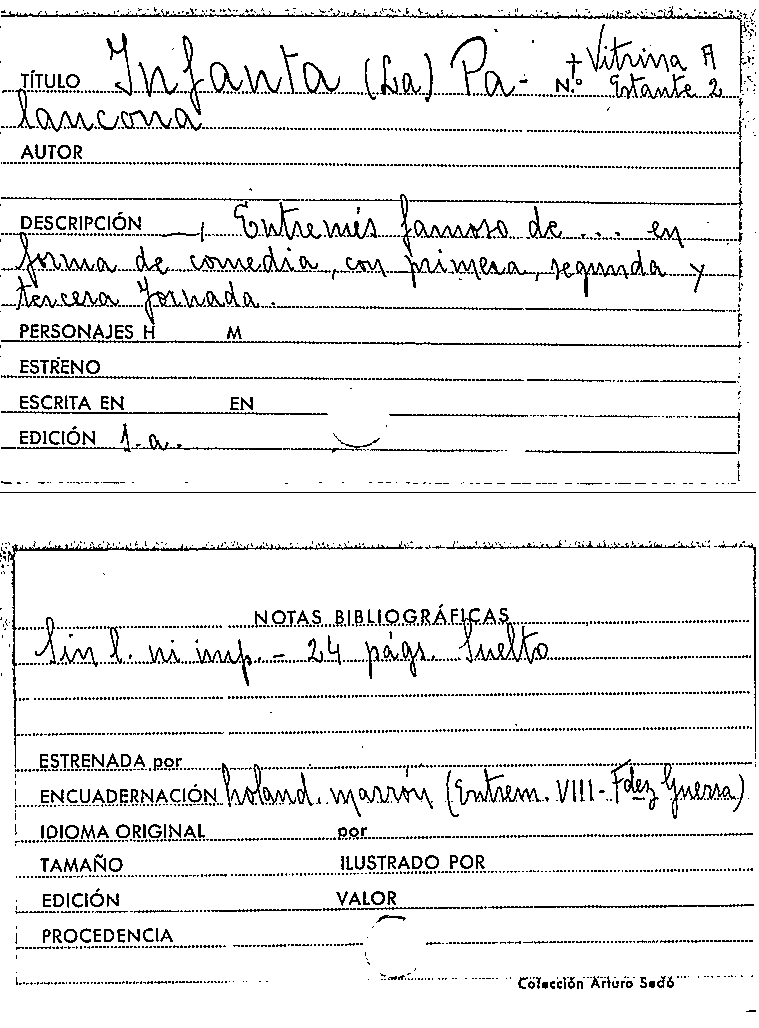 + Vitrina A
TÍTULO Infanta (La) Pa- N.º Estante 2
lancona
AUTOR
DESCRIPCIÓN —, Entremés famoso de ... en
forma de comedia, con primera, segunda y
tercera Jornada.
PERSONAJES H M
ESTRENO
ESCRITA EN EN
EDICIÓN s.a.
NOTAS BIBLIOGRÁFICAS
Sin l. ni imp. - 24 págs. Suelto
ESTRENADA por
ENCUADERNACIÓN holand. marrón (Entrem. VIII - Fdez Guerra)
IDIOMA ORIGINAL por
TAMAÑO ILUSTRADO POR
EDICIÓN VALOR
PROCEDENCIA
Colección Arturo Sedó